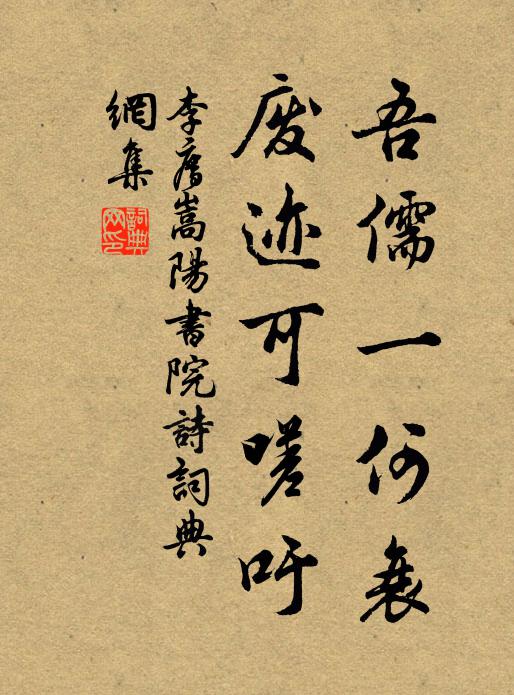 吾儒一何衰
废迹可嗟吁
李廌嵩陽書院詩詞典
網集
詞典網印